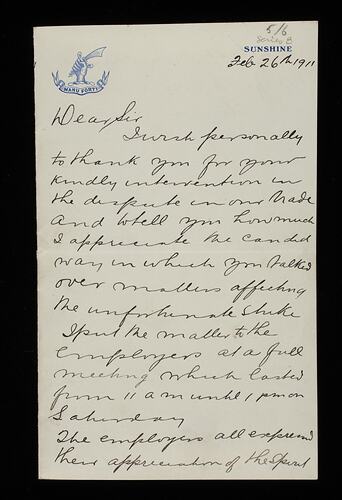 5/6
Series B
SUNSHINE
MANU FORTI
Feb 26th 1911
Dear Sir
I wish personally
to thank you for your
kindly intervention in
the dispute in our trade
and to tell you how much
I appreciate the candid
way in which you talked
over matters affecting
the unfortunate strike
I put the matter to the
employers at a full
meeting which lasted
from 11 am until 1 pm on
Saturday
The employers all expressed
their appreciation of the spirit